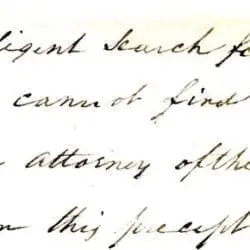 ligent search fo
cannot find
attorney of the
this precept